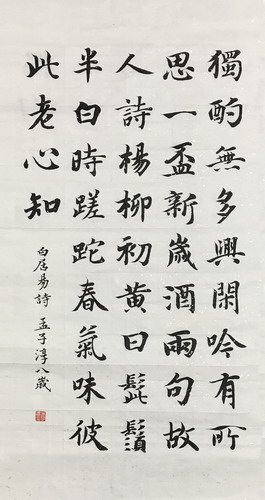 獨酌無多興閑吟有所
思一盃新歲酒兩句故
人詩楊柳初黃日髭鬚
半白時蹉跎春氣味彼
此老心知
白居易詩 孟子淳八歲